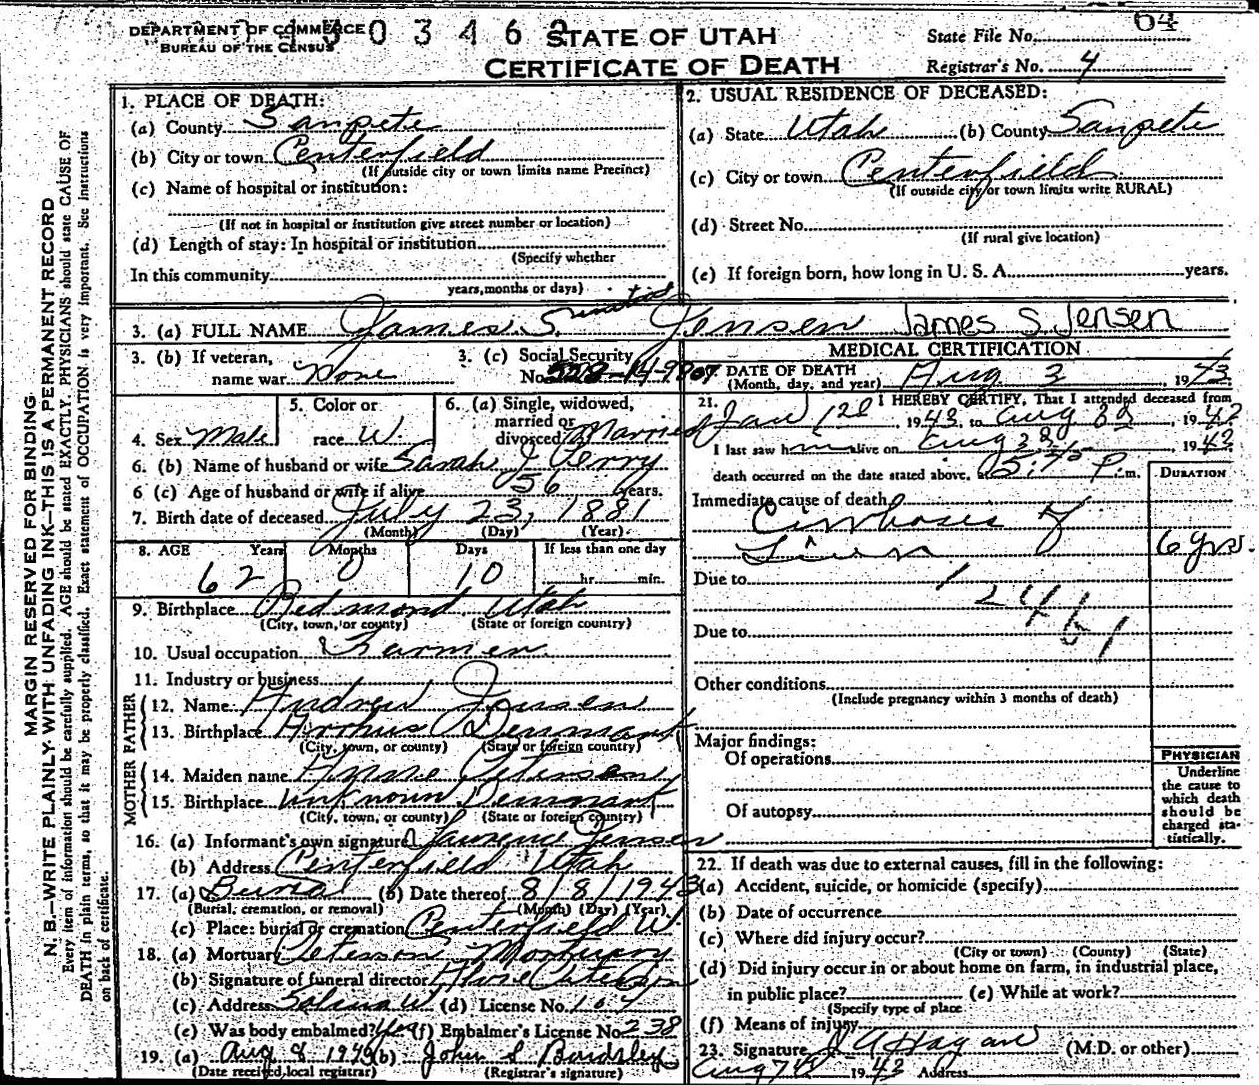 DEPARTMENT OF COMMERCE
BUREAU OF THE CENSUS
STATE OF UTAH
CERTIFICATE OF DEATH
State File No. 64
Registrar's No. 4
MARGIN RESERVED FOR BINDING.
N. B.—WRITE PLAINLY WITH UNFADING INK—THIS IS A PERMANENT RECORD
Every item of information should be carefully supplied. AGE should be stated EXACTLY. PHYSICIANS should state CAUSE OF
DEATH in plain terms, so that it may be properly classified. Exact statement of OCCUPATION is very important. See instructions
on back of certificate.
1. PLACE OF DEATH:
(a) County Sanpete
(b) City or town Centerfield
(If outside city or town limits name Precinct)
(c) Name of hospital or institution:
(If not in hospital or institution give street number or location)
(d) Length of stay: In hospital or institution
(Specify whether
In this community
years, months or days)
2. USUAL RESIDENCE OF DECEASED:
(a) State Utah (b) County Sanpete
(c) City or town Centerfield
(If outside city or town limits write RURAL)
(d) Street No.
(If rural give location)
(e) If foreign born, how long in U. S. A. years.
3. (a) FULL NAME James S. Jensen James S. Jensen
3. (b) If veteran, name war None
3. (c) Social Security No.
4. Sex Male
5. Color or race W.
6. (a) Single, widowed, married or divorced Married
6. (b) Name of husband or wife Sarah J
6 (c) Age of husband or wife if alive 56 years.
7. Birth date of deceased July 23, 1881
(Month) (Day) (Year)
8. AGE Years Months Days If less than one day
62 0 10 hr. min.
9. Birthplace Redmond Utah
(City, town, or county) (State or foreign country)
10. Usual occupation Farmer
11. Industry or business
FATHER
12. Name Andrew Jensen
13. Birthplace Denmark
(City, town, or county) (State or foreign country)
MOTHER
14. Maiden name Petersen
15. Birthplace Unknown Denmark
(City, town, or county) (State or foreign country)
16. (a) Informant's own signature Lawrence Jensen
(b) Address Centerfield Utah
17. (a) Burial (b) Date thereof 8/8/1943
(Burial, cremation, or removal) (Month) (Day) (Year)
(c) Place: burial or cremation Centerfield U.
18. (a) Mortuary Peterson Mortuary
(b) Signature of funeral director
(c) Address Salina U (d) License No. 164
(e) Was body embalmed? Yes (f) Embalmer's License No. 238
19. (a) Aug 8 1943 (b) John S Bardsley
(Date received local registrar) (Registrar's signature)
MEDICAL CERTIFICATION
DATE OF DEATH
(Month, day, and year) Aug 3, 1943
21. I HEREBY CERTIFY, That I attended deceased from
Jan 1943, to Aug 19
I last saw him alive on Aug 1943
death occurred on the date stated above, at P. m.
DURATION
Immediate cause of death
Cirrhosis of
Liver 6 yrs.
Due to
Due to
Other conditions
(Include pregnancy within 3 months of death)
Major findings:
Of operations
Of autopsy
PHYSICIAN
Underline
the cause to
which death
should be
charged sta-
tistically.
22. If death was due to external causes, fill in the following:
(a) Accident, suicide, or homicide (specify)
(b) Date of occurrence
(c) Where did injury occur?
(City or town) (County) (State)
(d) Did injury occur in or about home on farm, in industrial place,
in public place? (e) While at work?
(Specify type of place
(f) Means of injury
23. Signature Hagan (M.D. or other)
Aug 1943 Address